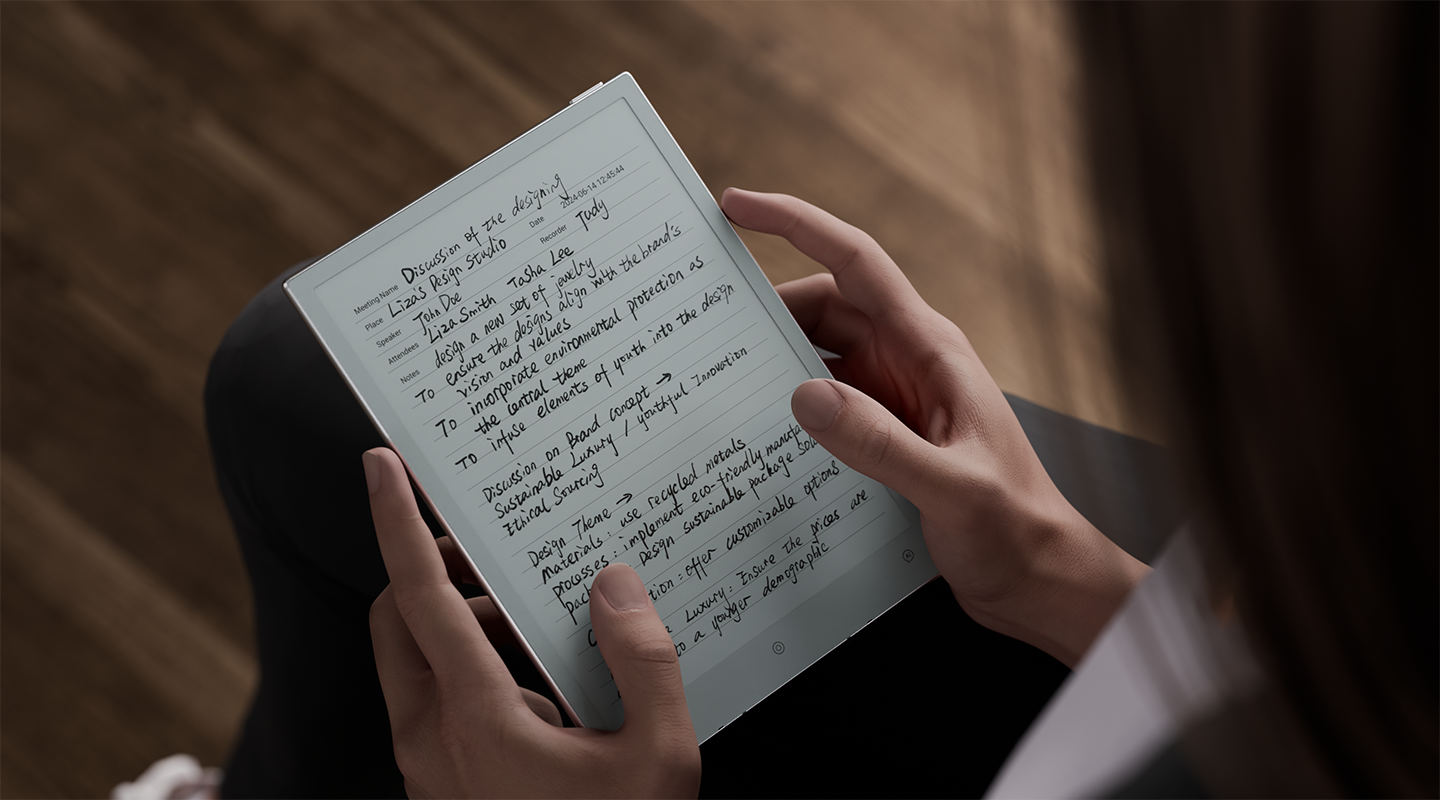 Meeting Name Discussion of the designing
Place Liza's Design Studio Date 2024-06-14 12:45:44
Speaker John Doe Recorder Judy
Attendees Liza Smith Tasha Lee
Notes design a new set of jewelry
To ensure the designs align with the brand's
vision and values
To incorporate environmental protection as
the central theme
To infuse elements of youth into the design
Discussion on Brand concept →
Sustainable Luxury / youthful Innovation
Ethical Sourcing
Design Theme →
materials: use recycled metals
processes: implement eco-friendly
Design sustainable package
: offer customizable options
Luxury: Ensure the prices are
to a younger demographic